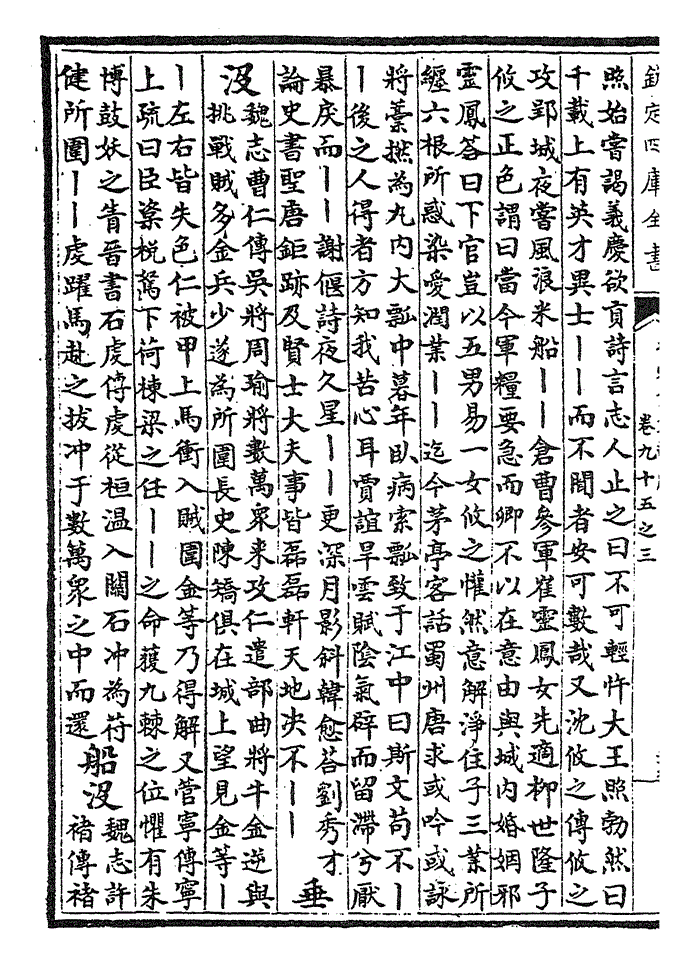 欽定四庫全書
卷九十五之三
照始嘗謁義慶欲貢詩言志人止之曰不可輕忤大王照勃然曰
千載上有英才異士丨丨而不聞者安可數哉又沈攸之傳攸之
攻郢城夜嘗風浪米船丨丨倉曹參軍崔靈鳳女先適柳世隆子
攸之正色謂曰當今軍糧要急而卿不以在意由與城内婚姻邪
靈鳳答曰下官豈以五男易一女攸之懽然意解淨住子三業所
纏六根所惑染愛潤業丨丨迄今茅亭客話蜀州唐求或吟或詠
將藁撚為丸内大瓢中暮年臥病索瓢致于江中曰斯文苟不丨
丨後之人得者方知我苦心耳賈誼旱雲賦陰氣辟而留滯兮厭
暴戾而丨丨謝偃詩夜久星丨丨更深月影斜韓愈荅劉秀才
論史書聖唐鉅跡及賢士大夫事皆磊磊軒天地決不丨丨
垂
没
魏志曹仁傳吳將周瑜將數萬衆来攻仁遣部曲將牛金逆與
挑戰賊多金兵少遂為所圍長史陳矯俱在城上望見金等丨
丨左右皆失色仁被甲上馬衝入賊圍金等乃得解又管寧傳寧
上疏曰臣桀梲駑下荷棟梁之任丨丨之命獲九棘之位懼有朱
博鼓妖之眚晉書石虔傳虔從桓温入關石冲為苻
健所圍丨丨虔躍馬赴之拔冲于數萬衆之中而還
船没
魏志許
褚傳褚